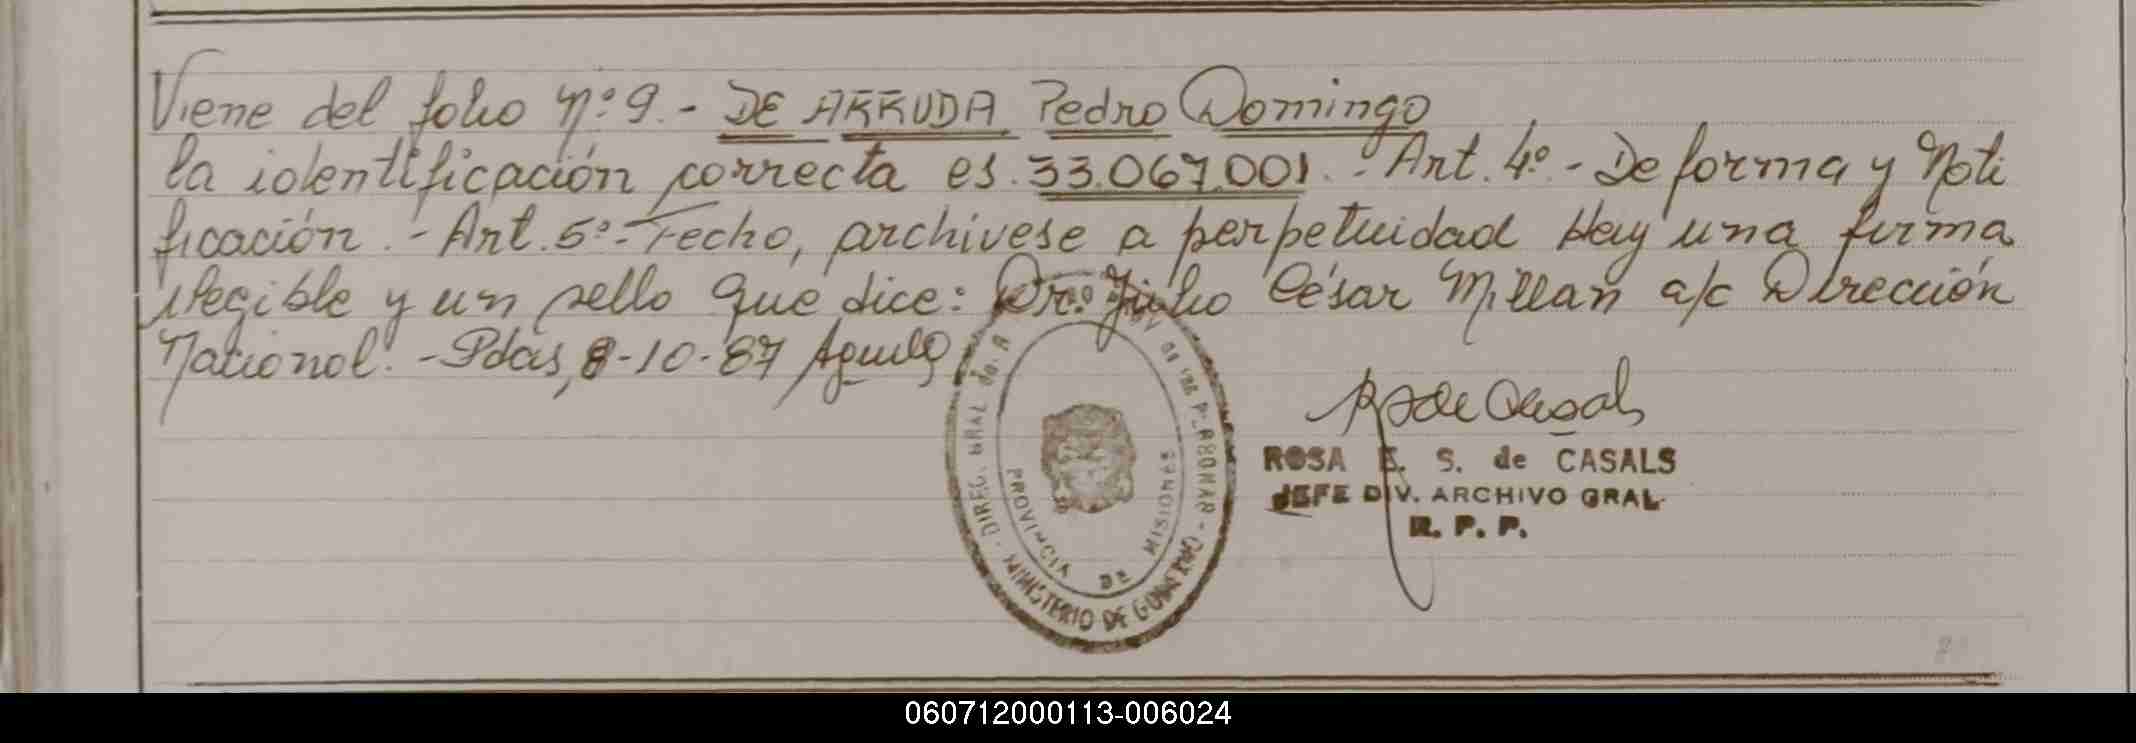 Viene del folio Nº 9.- DE ARRUDA Pedro Domingo
la identificación correcta es 33.067.001.- Art. 4º.- De forma y Noti
ficación.- Art. 5º.- Fecho, archívese a perpetuidad Hay una firma
ilegible y un sello que dice: Dr. Julio César Millan a/c Dirección
Nacional.- Pdas, 8-10-87
DIREC. GRAL
de las PERSONAS - MINISTERIO DE GOBIERNO
PROVINCIA DE MISIONES
ROSA E. S. de CASALS
JEFE DIV. ARCHIVO GRAL.
R. P. P.
060712000113-006024